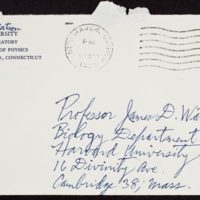 Watson
ERSITY
ORATORY
OF PHYSICS
, CONNECTICUT
NEW HAVEN
PM
Professor James D. Wa
Biology Department
Harvard University
16 Divinity Ave.
Cambridge 38, Mass.